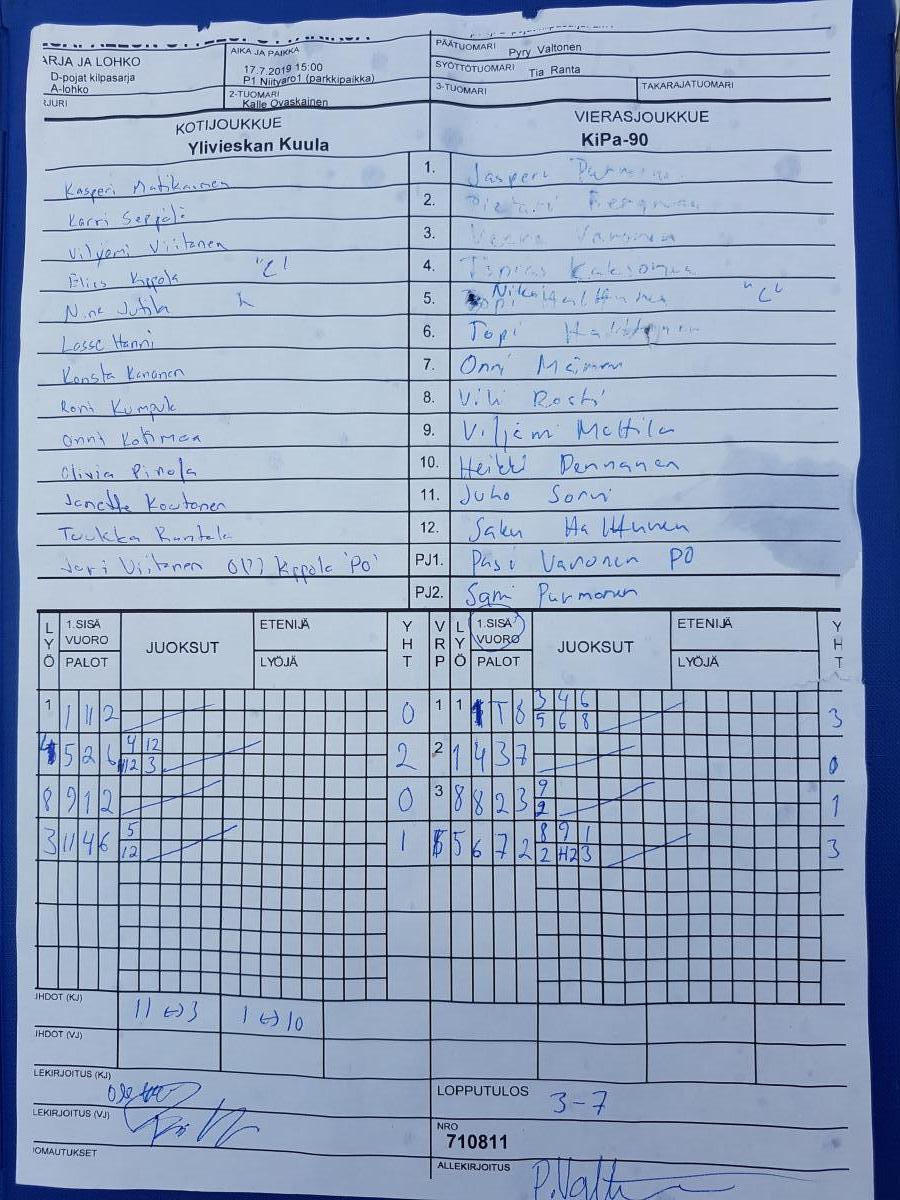 ARJA JA LOHKO
D-pojat kilpasarja
A-lohko
RJURI
AIKA JA PAIKKA
17.7.2019 15:00
P1 Niityaro1 (parkkipaikka)
2-TUOMARI
Kalle Ovaskainen
PÄÄTUOMARI Pyry Valtonen
SYÖTTÖTUOMARI Tia Ranta
3-TUOMARI TAKARAJATUOMARI
KOTIJOUKKUE VIERASJOUKKUE
Ylivieskan Kuula KiPa-90
Kasperi Matikainen 1. Jasperi
Karri Seppälä 2.
Viljami Viitanen 3. Varonen
Elias Kippola "C" 4.
5. Niko "C"
Lasse Hanni 6. Topi
Konsta Kananen 7. Onni
Roni 8. Vili Rosti
Onni 9. Viljami Mattila
Olivia Pirola 10. Heikki Pennanen
Janette Koutonen 11. Juho Sorvi
Tuukka Rantala 12. Saku Halttunen
Jari Viitanen Kippola 'PO' PJ1. Pasi Varonen PO
PJ2. Sami Purmonen
LYÖ 1.SISÄ VUORO PALOT JUOKSUT ETENIJÄ LYÖJÄ YHT VRP LYÖ 1.SISÄ VUORO PALOT JUOKSUT ETENIJÄ LYÖJÄ YHT
1 1 11 2 0 1 1 1 8 3 4 6 5 6 8 3
5 2 6 4 12 12 3 2 2 1 4 3 7 0
8 9 1 2 0 3 8 8 2 3 9 2 1
3 11 4 6 5 12 1 5 6 7 2 8 9 1 2 12 3 3
IHDOT (KJ) 11 ↔ 3 1 ↔ 10
IHDOT (VJ)
LEKIRJOITUS (KJ)
LEKIRJOITUS (VJ)
IOMAUTUKSET
LOPPUTULOS 3-7
NRO
710811
ALLEKIRJOITUS P.Valt